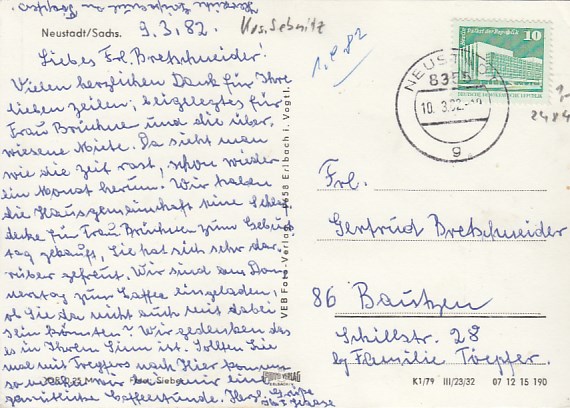 Neustadt/Sachs.
9.3.82.
Krs. Sebnitz
Liebes Frl. Bretschneider!
Vielen herzlichen Dank für Ihre
lieben Zeilen, beigelegtes für
Frau Brückner und die über-
wiesene Miete. Da sieht man
wie die Zeit rast, schon wieder
ein Monat herum. Wir haben
die Hausgemeinschaft eine
decke für Frau Brückner zum Geburts
tag gekauft, Sie hat sich sehr dar-
über gefreut. Wir sind am Don
nerstag zur Kaffee eingeladen,
ob Sie da nicht auch mit dabei
sein könnten? Wir gedenken das
es in Ihrem Sinn ist. Sollten Sie
mal mit Treffers nach Hier kommen
so
gemütliche Kaffeestunde. Herzl. Grüße
VEB Foto-Verlag 9658 Erlbach i. Vogtl.
10
Palast der Republik
DEUTSCHE DEMOKRATISCHE REPUBLIK
NEUSTADT
8355
10.3.82
g
2484
Frl.
Gertrud Bretschneider
86 Bautzen
Schillstr. 28
by Familie Toepfer.
K1/79 III/23/32 07 12 15 190